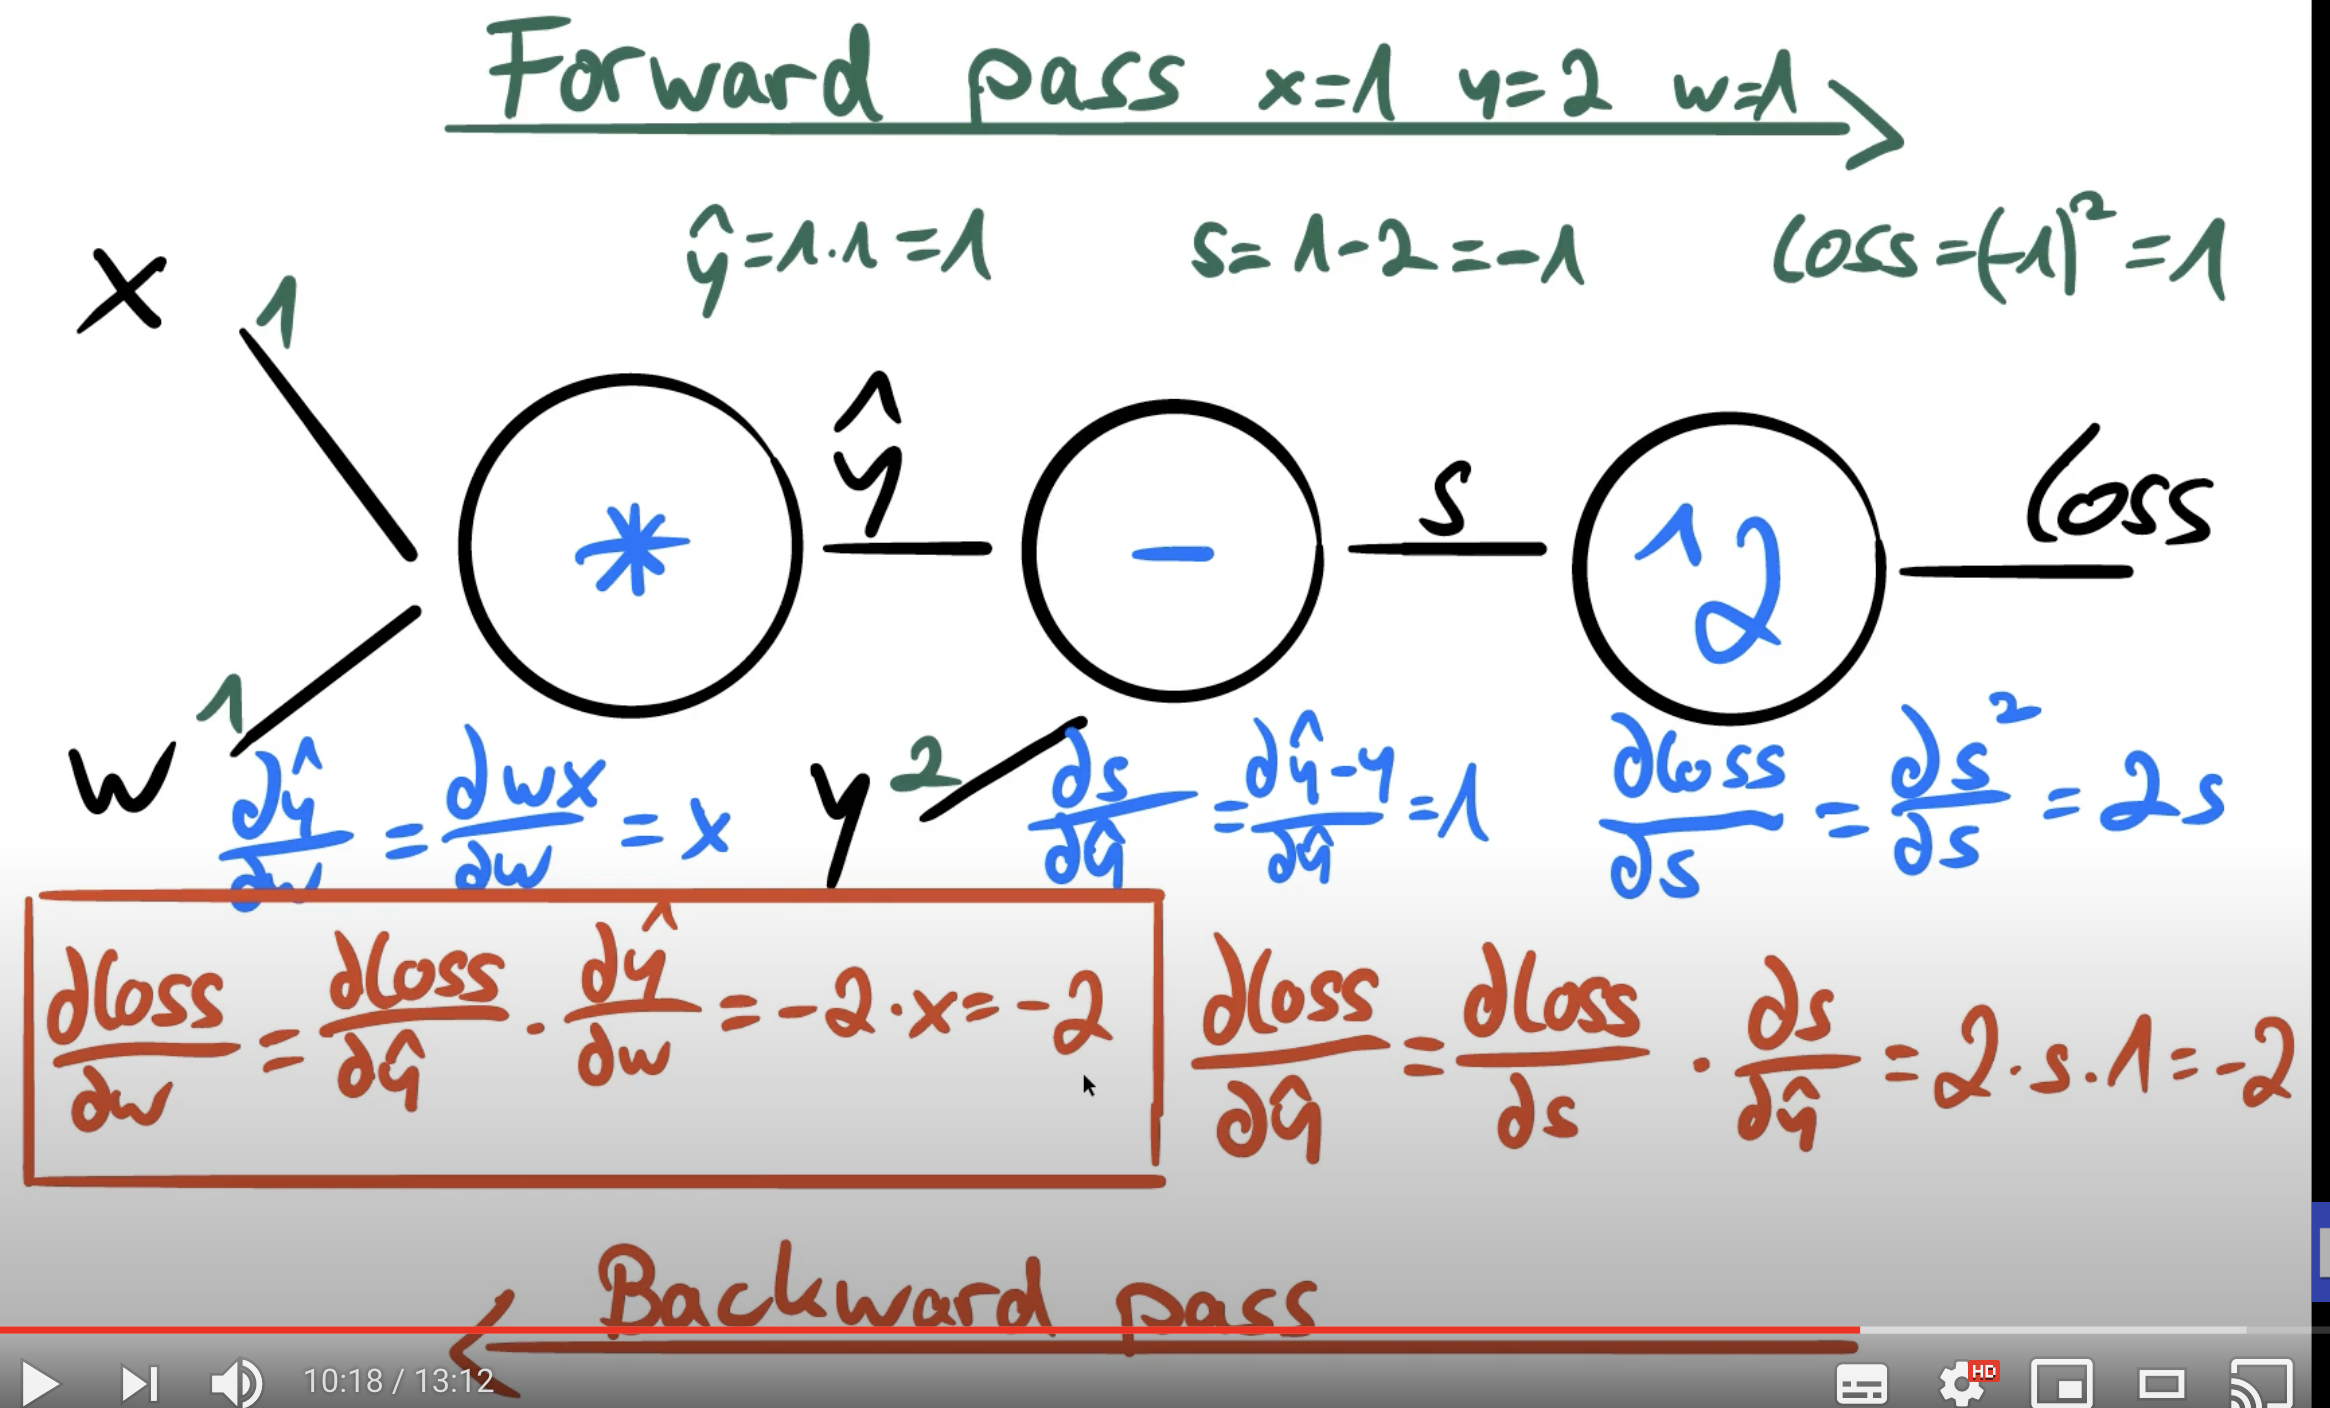 Forward pass x=1 y=2 w=1
ŷ=1·1=1 s=1-2=-1 loss=(-1)²=1
x 1
* ŷ - s ^2 loss
w 1 y 2
∂ŷ/∂w = ∂wx/∂w = x ∂s/∂ŷ = ∂ŷ-y/∂ŷ = 1 ∂loss/∂s = ∂s²/∂s = 2s
dloss/∂w = dloss/∂ŷ · dŷ/dw = -2·x = -2 dloss/∂ŷ = dloss/∂s · ∂s/∂ŷ = 2·s·1 = -2
Backward pass
10:18 / 13:12
HD